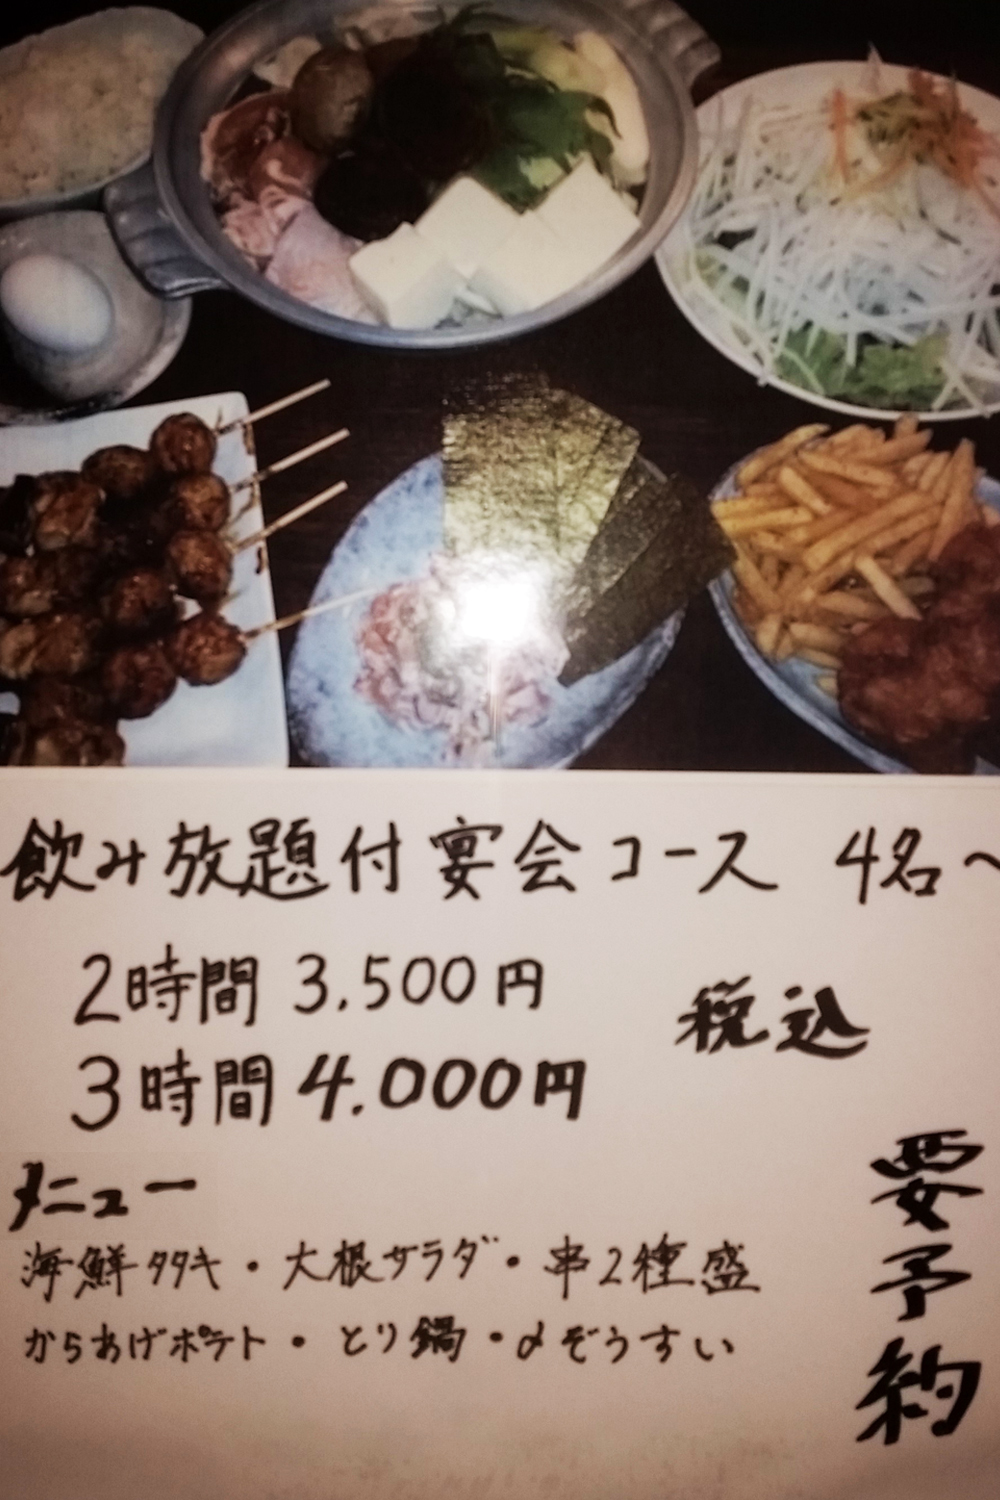 飲み放題付宴会コース 4名〜
2時間 3,500円
3時間 4.000円
税込
メニュー
海鮮タタキ・大根サラダ・串2種盛
からあげポテト・とり鍋・〆ぞうすい
要予約